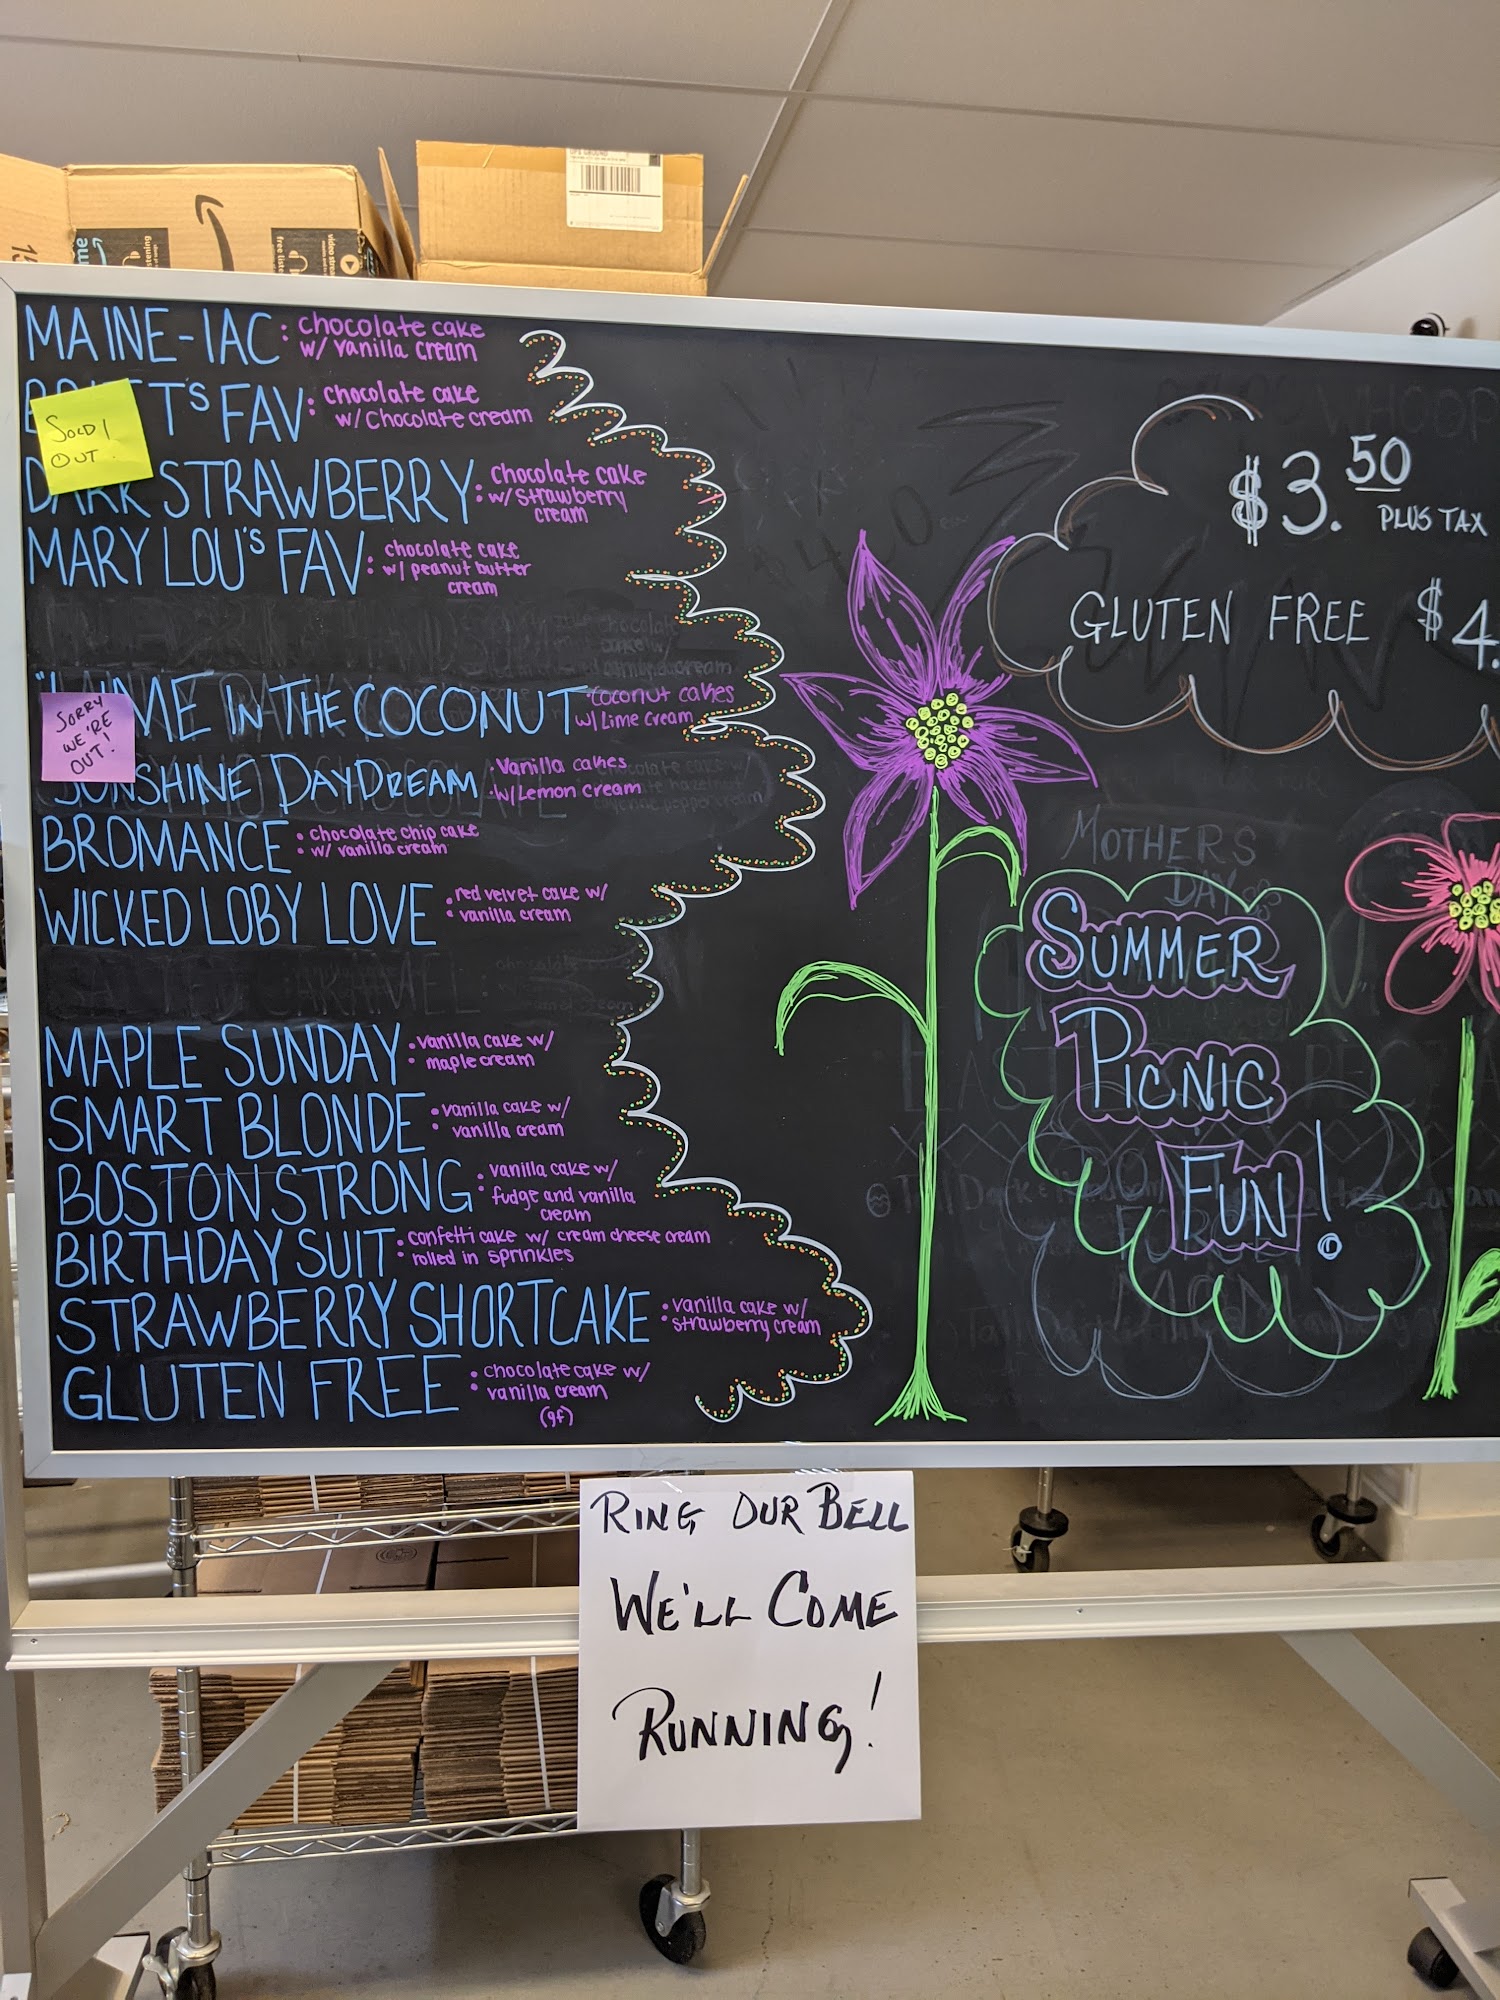 MAINE-IAC: chocolate cake
w/ vanilla cream
T's FAV: chocolate cake
w/ Chocolate cream
SOLD!
OUT.
DARK STRAWBERRY: chocolate cake
w/ strawberry
cream
MARY LOU's FAV: chocolate cake
w/ peanut butter
cream
IN THE COCONUT coconut cakes
w/ Lime cream
SORRY
WE'RE
OUT!
SUNSHINE DAYDREAM vanilla cakes
w/ Lemon cream
BROMANCE: chocolate chip cake
w/ vanilla cream
WICKED LOBY LOVE: red velvet cake w/
vanilla cream
MAPLE SUNDAY: vanilla cake w/
maple cream
SMART BLONDE: vanilla cake w/
vanilla cream
BOSTON STRONG: vanilla cake w/
fudge and vanilla
cream
BIRTHDAY SUIT: confetti cake w/ cream cheese cream
rolled in sprinkles
STRAWBERRY SHORTCAKE: vanilla cake w/
strawberry cream
GLUTEN FREE: chocolate cake w/
vanilla cream
(gf)
$3.50
PLUS TAX
GLUTEN FREE $4.
MOTHERS
DAY
SUMMER
PICNIC
FUN!
RING OUR BELL
WE'LL COME
RUNNING!